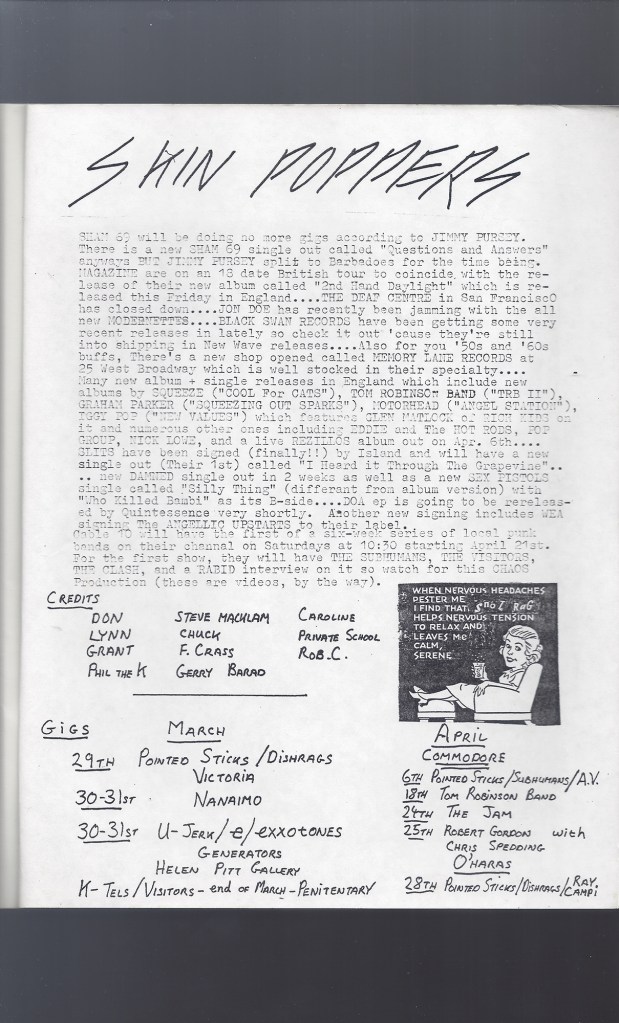 SKIN POPPERS
SHAM 69 will be doing no more gigs according to JIMMY PURSEY.
There is a new SHAM 69 single out called "Questions and Answers"
anyways BUT JIMMY PURSEY split to Barbadoes for the time being.
MAGAZINE are on an 18 date British tour to coincide with the re-
lease of their new album called "2nd Hand Daylight" which is re-
leased this Friday in England....THE DEAF CENTRE in San FranciscO
has closed down....JON DOE has recently been jamming with the all
new MODERNETTES....BLACK SWAN RECORDS have been getting some very
recent releases in lately so check it out 'cause they're still
into shipping in New Wave releases....Also for you '50s and '60s
buffs, There's a new shop opened called MEMORY LANE RECORDS at
25 West Broadway which is well stocked in their specialty....
Many new album + single releases in England which include new
albums by SQUEEZE ("COOL For CATS"), TOM ROBINSON BAND ("TRB II"),
GRAHAM PARKER ("SQUEEZING OUT SPARKS"), MOTORHEAD ("ANGEL STATION"),
IGGY POP ("NEW VALUES") which features GLEN MATLOCK of RICH KIDS on
it and numerous other ones including EDDIE and The HOT RODS, POP
GROUP, NICK LOWE, and a live REZILLOS album out on Apr. 6th....
SLITS have been signed (finally!!) by Island and will have a new
single out (Their 1st) called "I Heard it Through The Grapevine"..
.. new DAMNED single out in 2 weeks as well as a new SEX PISTOLS
single called "Silly Thing" (differant from album version) with
"Who Killed Bambi" as its B-side....DOA ep is going to be rereleas-
ed by Quintessence very shortly. Another new signing includes WEA
signing The ANGELLIC UPSTARTS to their label.
Cable 10 will have the first of a six-week series of local punk
bands on their channel on Saturdays at 10:30 starting April 21st.
For the first show, they will have THE SUBHUMANS, THE VISITORS,
THE CLASH, and a RABID interview on it so watch for this CHAOS
Production (these are videos, by the way).
CREDITS
DON STEVE MACKLAM CAROLINE
LYNN CHUCK PRIVATE SCHOOL
GRANT F. CRASS ROB.C.
PHIL THE K GERRY BARAD
WHEN NERVOUS HEADACHES
PESTER ME
I FIND THAT, SnoT RaG
HELPS NERVOUS TENSION
TO RELAX AND
LEAVES ME
CALM,
SERENE
GIGS MARCH
29TH POINTED STICKS/DISHRAGS
VICTORIA
30-31ST NANAIMO
30-31ST U-JERK/e/EXXOTONES
GENERATORS
HELEN PITT GALLERY
K-TELS/VISITORS - end OF MARCH - PENITENTARY
APRIL
COMMODORE
6TH POINTED STICKS/SUBHUMANS/A.V.
18TH TOM ROBINSON BAND
24TH THE JAM
25TH ROBERT GORDON with
CHRIS SPEDDING
O'HARAS
28TH POINTED STICKS/DISHRAGS/RAY CAMPI